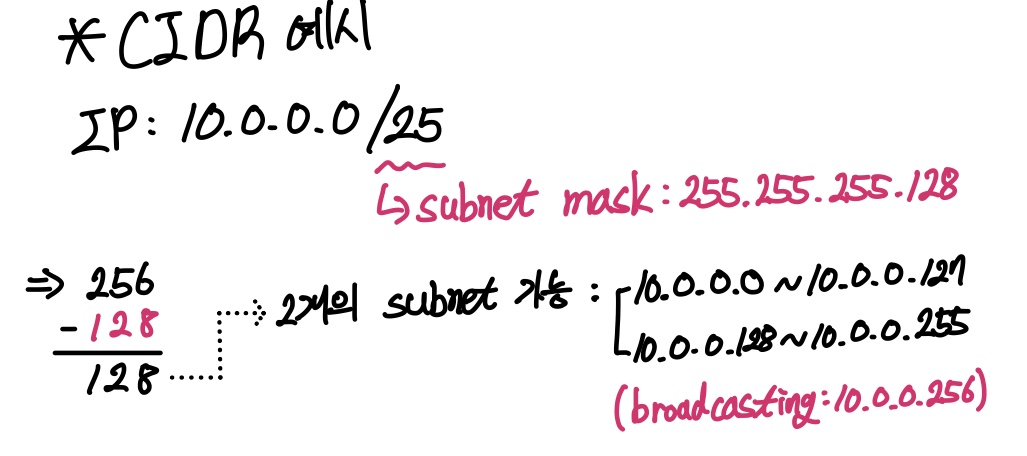 * CIDR 예시
IP: 10.0.0.0/25
↳ subnet mask: 255.255.255.128
⇒ 256
- 128
128
2개의 subnet 가능 :
10.0.0.0 ~ 10.0.0.127
10.0.0.128 ~ 10.0.0.255
(broadcasting: 10.0.0.256)